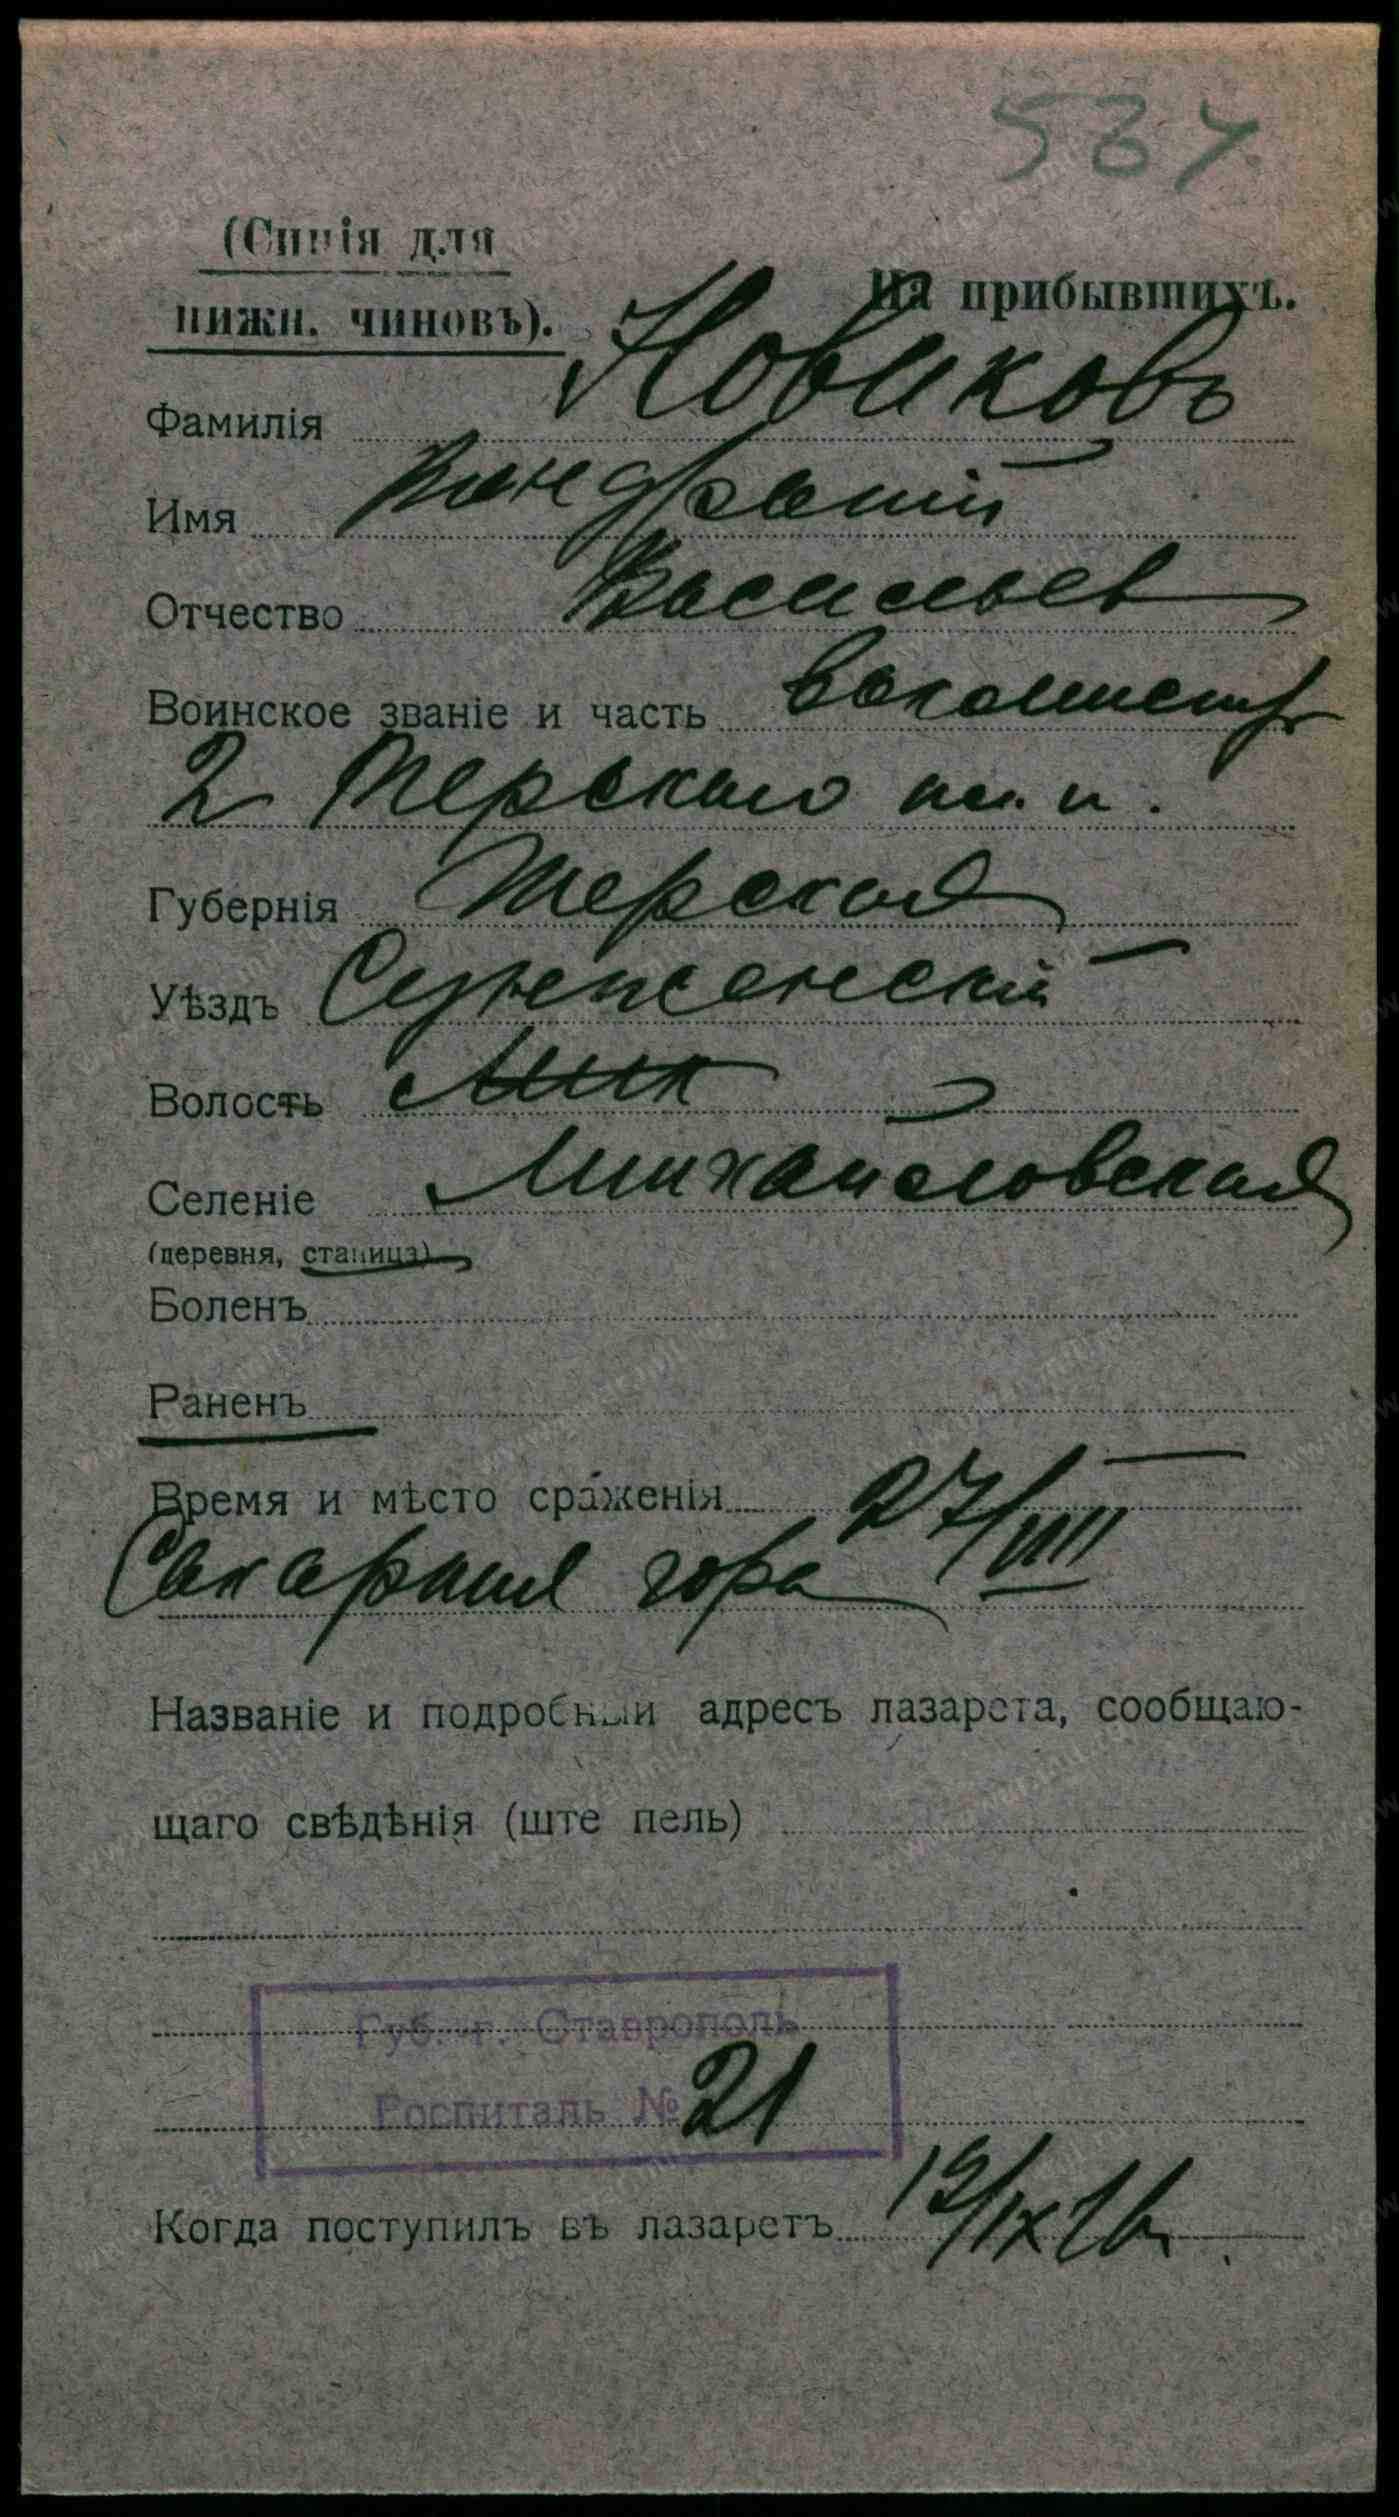 537
(Синія для
нижн. чиновъ).
На прибывшихъ.
Фамилія Новиковъ
Имя Кондратій
Отчество Васильев
Воинское званіе и часть вахмистр
2 Терскаго пл. п.
Губернія Терская
Уѣздъ Сунженскій
Волость Мих
Селеніе Михайловская
(деревня, станица)
Боленъ
Раненъ
Время и мѣсто сраженія 27/VIII
Сахарная гора
Названіе и подробный адресъ лазарета, сообщаю-
щаго свѣдѣнія (штемпель)
Губ. г. Ставрополь
Госпиталь № 21
Когда поступилъ въ лазаретъ 19/IX 16